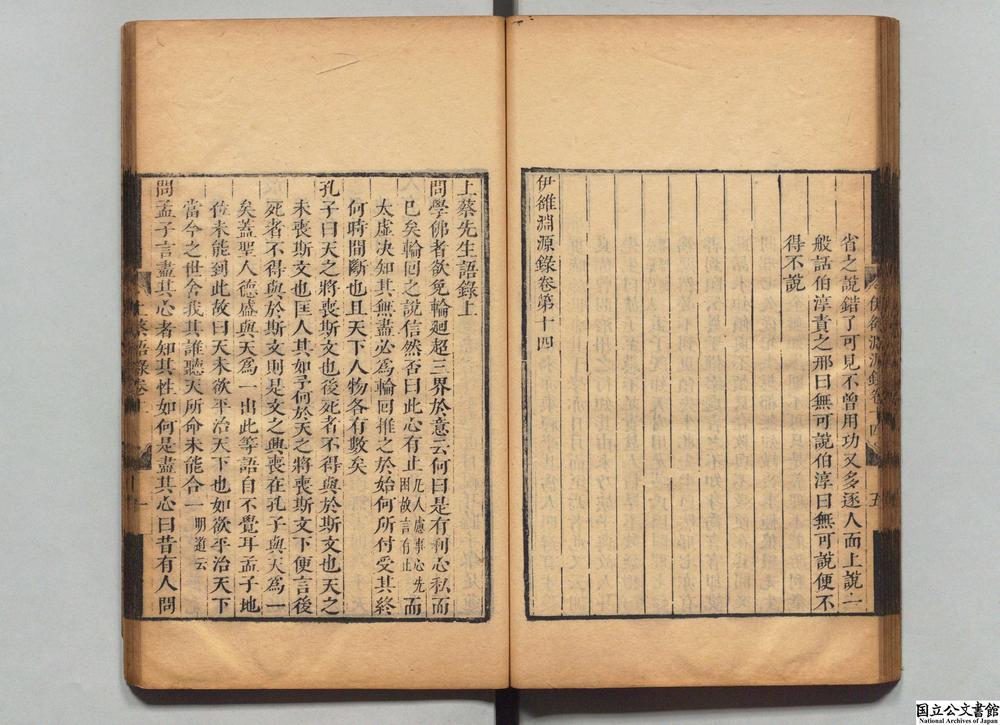 省之說錯了可見不曾用功又多逐人而上說一
般話伯淳責之邢曰無可說伯淳曰無可說便不
得不說
伊雒淵源錄卷第十四
上蔡先生語錄上
問學佛者欲免輪廻超三界於意云何曰是有利心私而
已矣輪回之說信然否曰此心有止凡人慮事心先困故言有止而
太虛决知其無盡必爲輪回推之於始何所付受其終
何時間斷也且天下人物各有數矣
孔子曰天之將喪斯文也後死者不得與於斯文也天之
未喪斯文也匡人其如予何於天之將喪斯文下便言後
死者不得與於斯文則是文之興喪在孔子與天爲一
矣蓋聖人德盛與天爲一出此等語自不覺耳孟子地
位未能到此故曰天未欲平治天下也如欲平治天下
當今之世舍我其誰聽天所命未能合一明道云
問孟子言盡其心者知其性如何是盡其心曰昔有人問
國立公文書館
National Archives of Japan